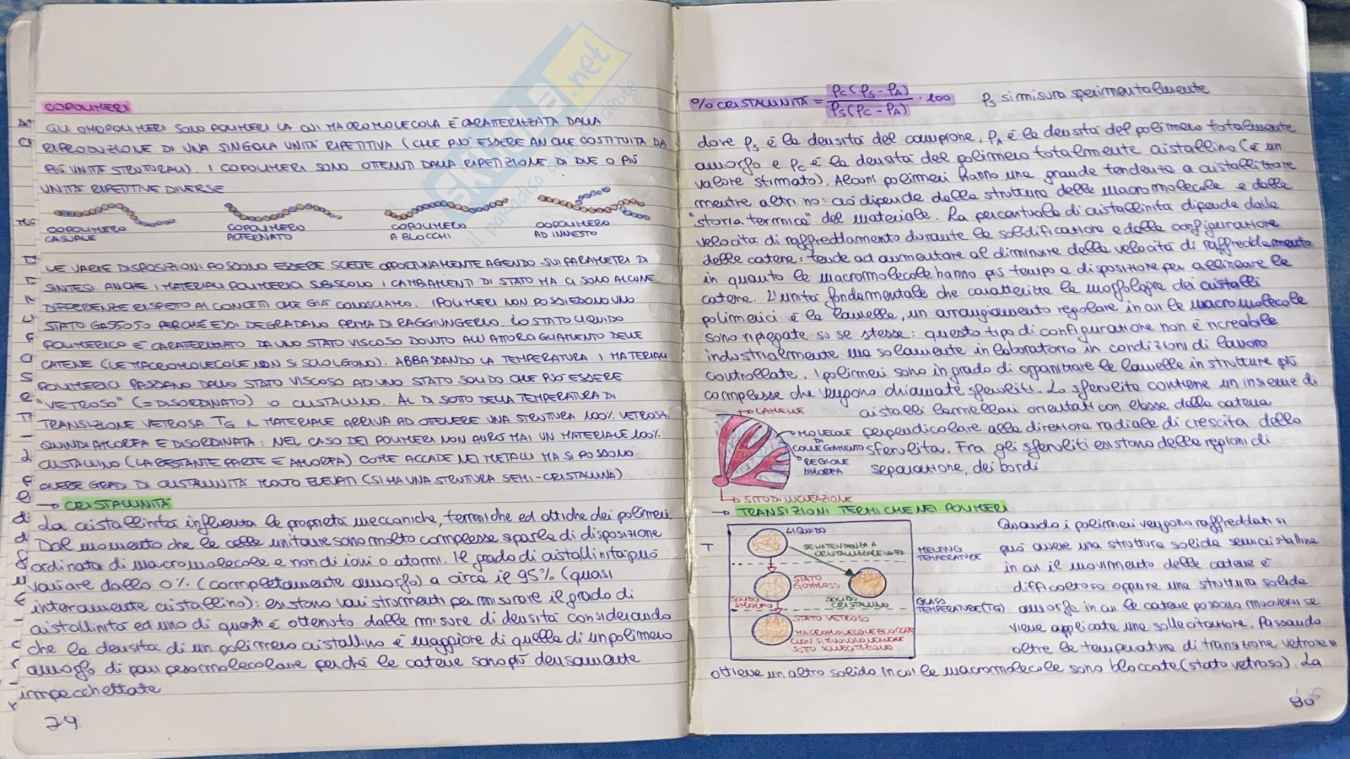 COPOLIMERI
GLI OMOPOLIMERI SONO POLIMERI LA CUI MACROMOLECOLA È CARATERIZZATA DALLA
RIPRODUZIONE DI UNA SINGOLA UNITÀ RIPETITIVA (CHE PUÒ ESSERE ANCHE COSTITUITA DA
PIÙ UNITÀ STRUTTURALI). I COPOLIMERI SONO OTTENUTI DALLA RIPETIZIONE DI DUE O PIÙ
UNITÀ RIPETITIVE DIVERSE
COPOLIMERO CASUALE
COPOLIMERO ALTERNATO
COPOLIMERO A BLOCCHI
COPOLIMERO AD INNESTO
LE VARIE DISPOSIZIONI POSSONO ESSERE SCELTE OPPORTUNAMENTE AGENDO SUI PARAMETRI DI
SINTESI. ANCHE I MATERIALI POLIMERICI SUBISCONO I CAMBIAMENTI DI STATO MA CI SONO ALCUNE
DIFFERENZE RISPETTO AI CONCETTI CHE GIÀ CONOSCIAMO. I POLIMERI NON POSSIEDONO UNO
STATO GASSOSO PERCHÈ ESSI DEGRADANO PRIMA DI RAGGIUNGERLO. LO STATO LIQUIDO
POLIMERICO È CARATERIZZATO DA UNO STATO VISCOSO DOVUTO ALL'ATTORCIGLIAMENTO DELLE
CATENE (LE MACROMOLECOLE NON SI SCIOLGONO). ABBASSANDO LA TEMPERATURA I MATERIALI
POLIMERICI PASSANO DALLO STATO VISCOSO AD UNO STATO SOLIDO CHE PUÒ ESSERE
"VETROSO" (=DISORDINATO) O CRISTALLINO. AL DI SOTTO DELLA TEMPERATURA DI
TRANSIZIONE VETROSA TG IL MATERIALE ARRIVA AD OTTENERE UNA STRUTTURA 100% VETROSA,
QUINDI AMORFA E DISORDINATA: NEL CASO DEI POLIMERI NON AVRÒ MAI UN MATERIALE 100%
CRISTALLINO (LA RESTANTE PARTE È AMORFA) COME ACCADE NEI METALLI MA SI POSSONO
AVERE GRADI DI CRISTALLINITÀ MOLTO ELEVATI (SI HA UNA STRUTTURA SEMI-CRISTALLINA)
→ CRISTALLINITÀ
La cristallinità influenza le proprietà meccaniche, termiche ed ottiche dei polimeri.
Dal momento che le celle unitarie sono molto complesse si parla di disposizione
ordinata di macromolecole e non di ioni o atomi. Il grado di cristallinità può
variare dallo 0% (completamente amorfo) a circa il 95% (quasi
interamente cristallino): esistono vari strumenti per misurare il grado di
cristallinità ed uno di questi è ottenuto dalle misure di densità considerando
che la densità di un polimero cristallino è maggiore di quella di un polimero
amorfo di pari peso molecolare perchè le catene sono più densamente
impacchettate
79
% CRISTALLINITÀ = ρc(ρs - ρA) / ρs(ρc - ρA) · 100 ρs si misura sperimentalmente
dove ρs è la densità del campione, ρA è la densità del polimero totalmente
amorfo e ρc è la densità del polimero totalmente cristallino (è un
valore stimato). Alcuni polimeri hanno una grande tendenza a cristallizzare
mentre altri no: ciò dipende dalla struttura delle macromolecole e dalla
"storia termica" del materiale. La percentuale di cristallinità dipende dalla
velocità di raffreddamento durante la solidificazione e dalla configurazione
delle catene: tende ad aumentare al diminuire della velocità di raffreddamento
in quanto le macromolecole hanno più tempo a disposizione per allineare le
catene. L'unità fondamentale che caratterizza la morfologia dei cristalli
polimerici è la lamella, un arrangiamento regolare in cui le macromolecole
sono ripiegate su se stesse: questo tipo di configurazione non è ricreabile
industrialmente ma solamente in laboratorio in condizioni di lavoro
controllate. I polimeri sono in grado di organizzare le lamelle in strutture più
complesse che vengono chiamate sferuliti. La sferulite contiene un insieme di
cristalli lamellari orientati con l'asse della catena
perpendicolare alla direzione radiale di crescita della
sferulite. Fra gli sferuliti esistono delle regioni di
separazione, dei bordi
→ LAMELLE
→ MOLECOLE DI COLLEGAMENTO
→ REGIONE AMORFA
→ SITO DI NUCLEAZIONE
→ TRANSIZIONI TERMICHE NEI POLIMERI
LIQUIDO
T
MELTING TEMPERATURE
STATO GOMMOSO
SOLIDO AMORFO
SOLIDO CRISTALLINO
GLASS TEMPERATURE (TG)
STATO VETROSO
Quando i polimeri vengono raffreddati si
può avere una struttura solida semicristallina
in cui il movimento delle catene è
difficoltoso oppure una struttura solida
amorfa in cui le catene possono muoversi se
viene applicata una sollecitazione. Passando
oltre la temperatura di transizione vetrosa si
ottiene un altro solido in cui le macromolecole sono bloccate (stato vetroso). La
80
skuola.net